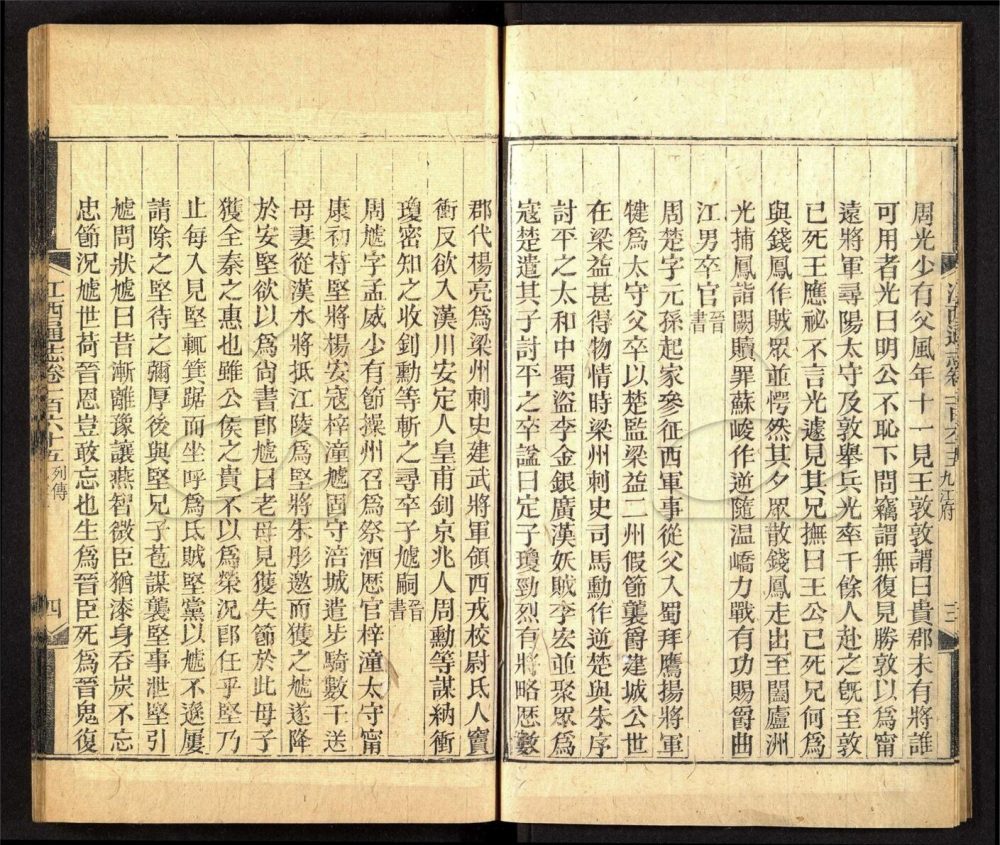 江西通志卷一百六十五 九江府 三
周光少有父風年十一見王敦敦謂曰貴郡未有將誰
可用者光曰明公不恥下問竊謂無復見勝敦以爲甯
遠將軍尋陽太守及敦舉兵光率千餘人赴之旣至敦
已死王應祕不言光遽見其兄撫曰王公已死兄何爲
與錢鳳作賊眾並愕然其夕眾散錢鳳走出至闔廬洲
光捕鳳詣闕贖罪蘇峻作逆隨温嶠力戰有功賜爵曲
江男卒官晉書
周楚字元孫起家參征西軍事從父入蜀拜鷹揚將軍
犍爲太守父卒以楚監梁益二州假節襲爵建城公世
在梁益甚得物情時梁州刺史司馬勳作逆楚與朱序
討平之太和中蜀盜李金銀廣漢妖賊李宏並聚眾爲
寇楚遣其子討平之卒諡曰定子瓊勁烈有將略厯數
郡代楊亮爲梁州刺史建武將軍領西戎校尉氐人竇
衝反欲入漢川安定人皇甫釗京兆人周勳等謀納衝
瓊密知之收釗勳等斬之尋卒子虓嗣晉書
周虓字孟威少有節操州召爲祭酒厯官梓潼太守甯
康初苻堅將楊安寇梓潼虓固守涪城遣步騎數千送
母妻從漢水將抵江陵爲堅將朱彤邀而獲之虓遂降
於安堅欲以爲尙書郎虓曰老母見獲失節於此母子
獲全秦之惠也雖公侯之貴不以爲榮況郎任乎堅乃
止每入見堅輒箕踞而坐呼爲氐賊堅黨以虓不遜屢
請除之堅待之彌厚後與堅兄子苞謀襲堅事泄堅引
虓問狀虓曰昔漸離豫讓燕智微臣猶漆身吞炭不忘
忠節況虓世荷晉恩豈敢忘也生爲晉臣死爲晉鬼復
江西通志卷一百六十五 列傳 四